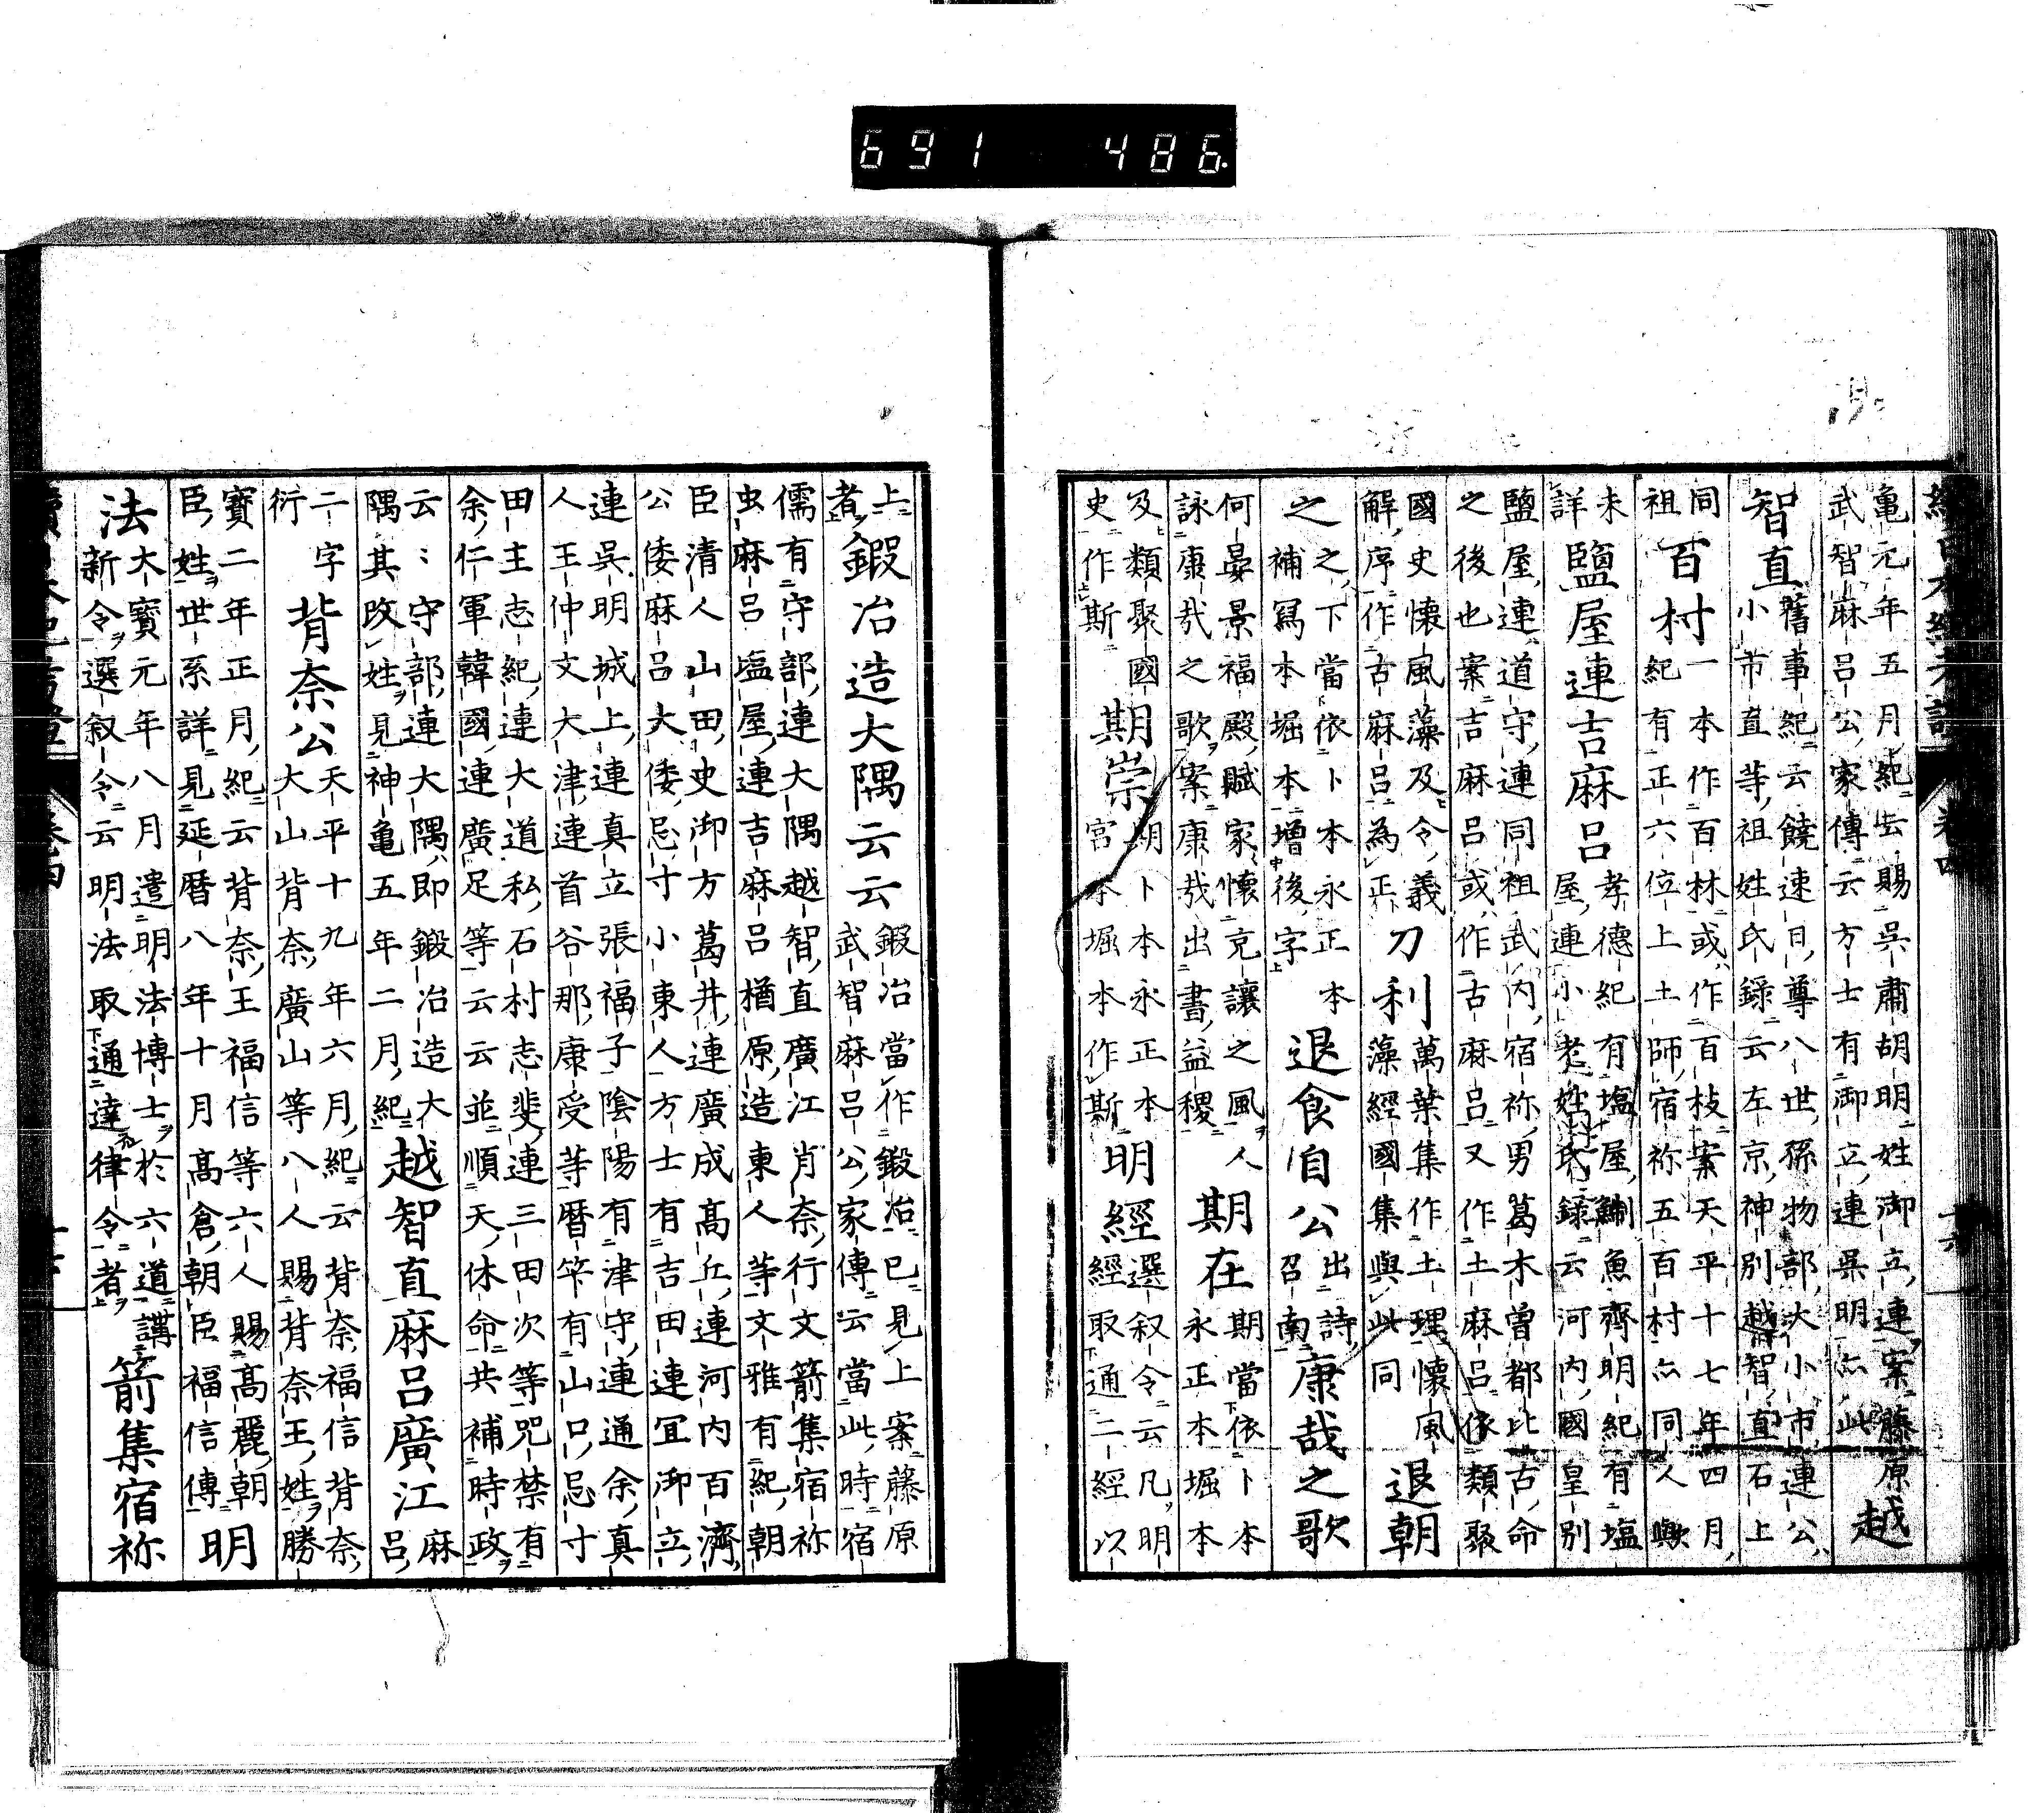 亀元年五月紀云賜吳肅胡明姓御立連案藤原
武智麻呂公家傳云方士有御立連吳明亦此
越
智直
舊事紀云饒速日尊八世孫物部大小市連公
小市直等祖姓氏錄云左京神別越智直石上
同
祖
百村
一本作百林或作百枝案天平十七年四月
紀有正六位上土師宿祢五百村亦同人歟
未
詳
鹽屋連吉麻呂
孝德紀有塩屋鯯魚齊明紀有塩
屋連小老姓氏錄云河内國皇別
鹽屋連道守連同祖武内宿祢男葛木曾都比古命
之後也案吉麻呂或作古麻呂又作土麻呂依類聚
國史懷風藻及令義
解序作古麻呂為正
刀利
萬葉集作土理懷風
藻經國集與此同
退朝
之
之下當依卜本永正本
補寫本堀本增後字
退食自公
出詩
召南
康哉之歌
何晏景福殿賦家懷克讓之風人
詠康哉之歌案康哉出書益稷
期在
期當依卜本
永正本堀本
及類聚國
史作斯
期崇
期卜本永正本
宮本堀本作斯
明經
選叙令云凡明
經取通二經以
上
者
鍜冶造大隅云云
鍜冶當作鍛冶已見上案藤原
武智麻呂公家傳云當此時宿
儒有守部連大隅越智直廣江肖奈行文箭集宿祢
虫麻呂塩屋連吉麻呂楢原造東人等文雅有紀朝
臣清人山田史御方葛井連廣成高丘連河内百濟
公倭麻呂大倭忌寸小東人方士有吉田連宜御立
連吳明城上連真立張福子陰陽有津守連通余真
人王仲文大津連首谷那康受等曆竿有山口忌寸
田主志紀連大道私石村志斐連三田次等咒禁有
余仁軍韓國連廣足等云云並順天休命共補時政
云〻守部連大隅即鍛冶造大
隅其改姓見神亀五年二月紀
越智直麻呂廣江
麻
呂
二字
衍
背奈公
天平十九年六月紀云背奈福信背奈
大山背奈廣山等八人賜背奈王姓勝
寶二年正月紀云背奈王福信等六人賜高麗朝
臣姓世系詳見延曆八年十月高倉朝臣福信傳
明
法
大寶元年八月遣明法博士於六道講
新令選叙令云明法取通達律令者
箭集宿祢
691 486